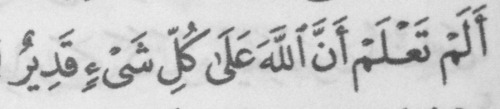 أَلَمْ تَعْلَمْ أَنَّ ٱللَّهَ عَلَىٰ كُلِّ شَىْءٍ قَدِيرٌ